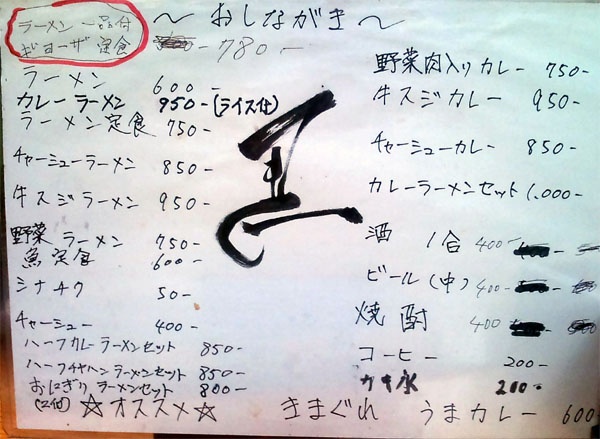 〜おしながき〜
ラーメン 一品付
ギョーザ 定食 780-
ラーメン 600-
カレーラーメン 950-(ライス付)
ラーメン定食 750-
チャーシューラーメン 850-
牛スジラーメン 950-
野菜ラーメン 750-
魚定食 600-
シナチク 50-
チャーシュー 400-
ハーフカレーラーメンセット 850-
ハーフチャハンラーメンセット 850-
おにぎりラーメンセット 800-
(2個)
野菜肉入りカレー 750-
牛スジカレー 950-
チャーシューカレー 850-
カレーラーメンセット 1,000-
酒 1合 400-
ビール(中) 400-
焼酎 400
コーヒー 200-
カキ氷 200-
☆オススメ☆ きまぐれ うまカレー 600-